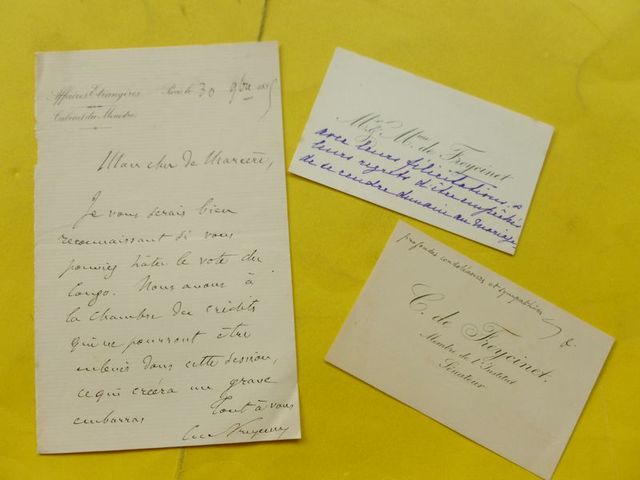 Affaires Etrangères
Cabinet du Ministre
Paris, le 30 9bre 1885
Mon cher de Marcère,
Je vous serais bien
reconnaissant si vous
pouviez hâter le vote du
Congo. Nous avons à
la chambre des crédits
qui ne pourront être
enlevés dans cette session,
ce qui créera un grave
embarras
Tout à vous
C. de Freycinet
Mr & Mme de Freycinet
avec leurs félicitations &
leurs regrets d'être empêchés
de se rendre demain au mariage
profondes condoléances et sympathies
C. de Freycinet.
Membre de l'Institut
Sénateur